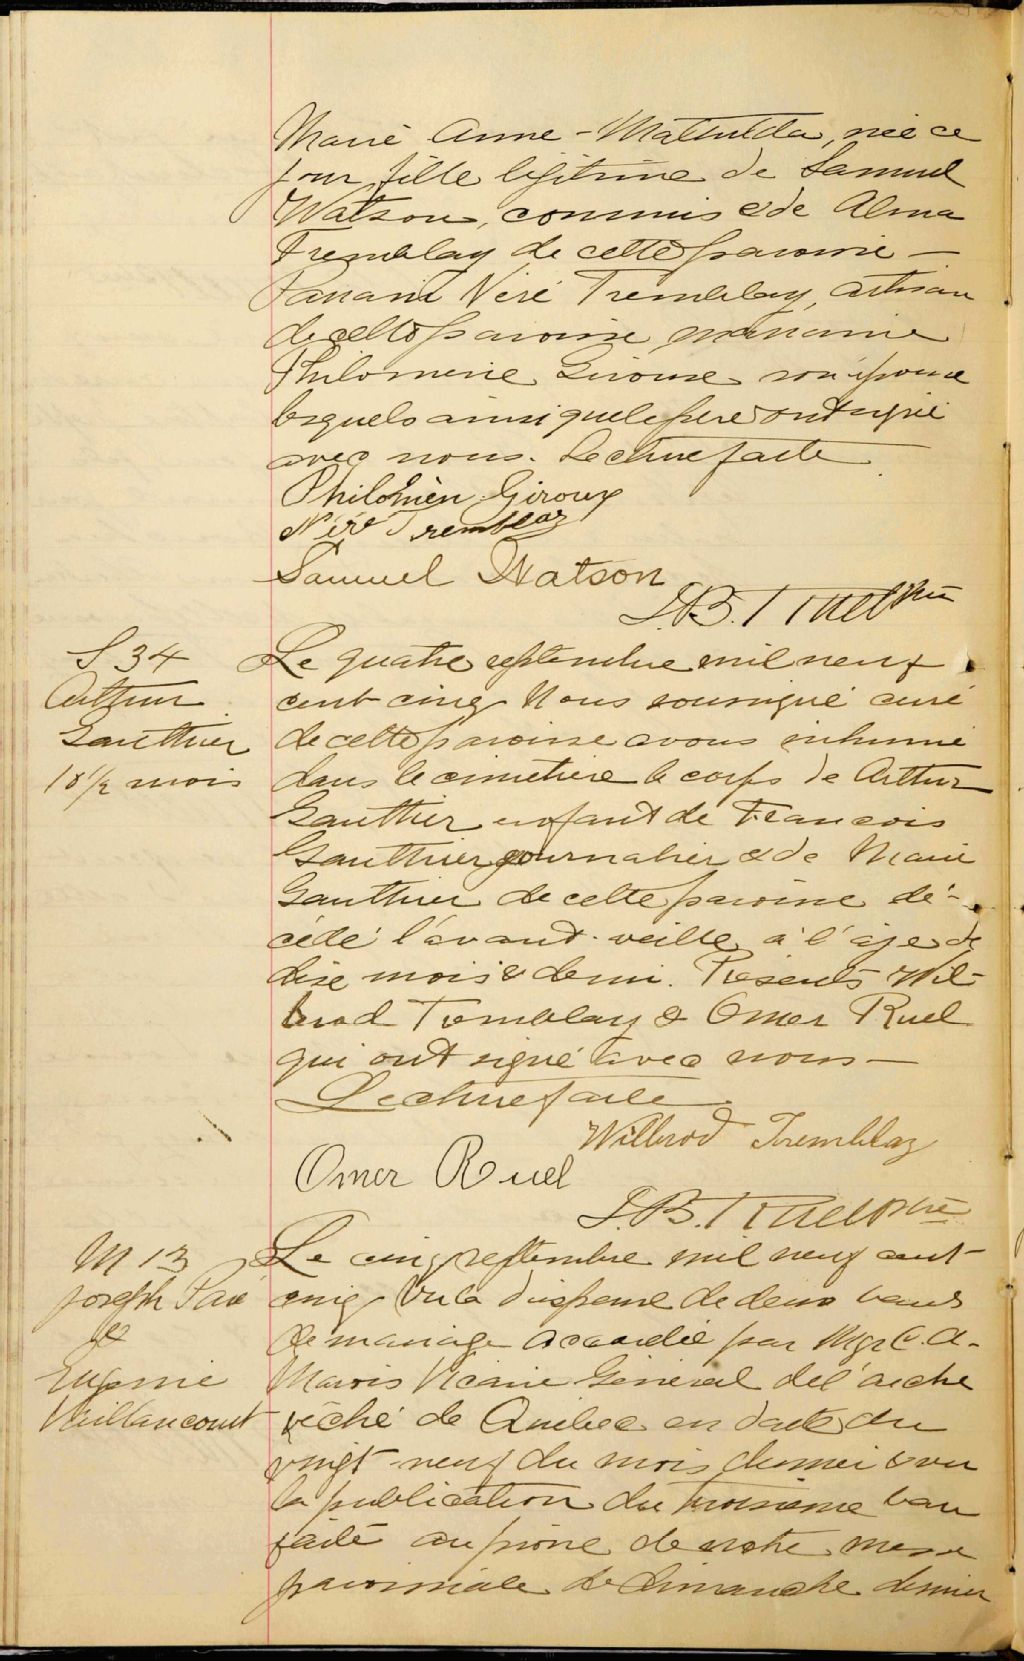 Marie Anne-Mathilda, née ce
jour, fille légitime de Samuel
Watson, commis & de Alma
Tremblay de cette paroisse –
Parrain Néré Tremblay, artisan
de cette paroisse, marraine
Philomène Giroux son épouse
lesquels ainsi que le père ont signé
avec nous. Lecture faite
Philomèn Giroux
Néré Tremblay
Samuel Watson
J.B. T Ruel Ptre
S 34
Arthur
Gauthier
10 1/2 mois
Le quatre septembre mil neuf
cent cinq Nous soussigné curé
de cette paroisse avons inhumé
dans le cimetière le corps de Arthur
Gauthier enfant de François
Gauthier journalier & de Marie
Gauthier de cette paroisse dé-
cédé l'avant-veille à l'âge de
dix mois & demi. Présents Wil-
brod Tremblay & Omer Ruel
qui ont signé avec nous –
Lecture faite
Wilbrod Tremblay
Omer Ruel
J.B. T Ruel Ptre
M 13
Joseph Paré
&
Eugénie
Vaillancourt
Le cinq septembre mil neuf cent
cinq Vu la dispense de deux bans
de mariage accordée par Mgr C. A.
Marois Vicaire Général de l'arche
vêché de Québec en date du
vingt-neuf du mois dernier & vu
la publication du troisième ban
faite au prône de notre messe
paroissiale de dimanche dernier